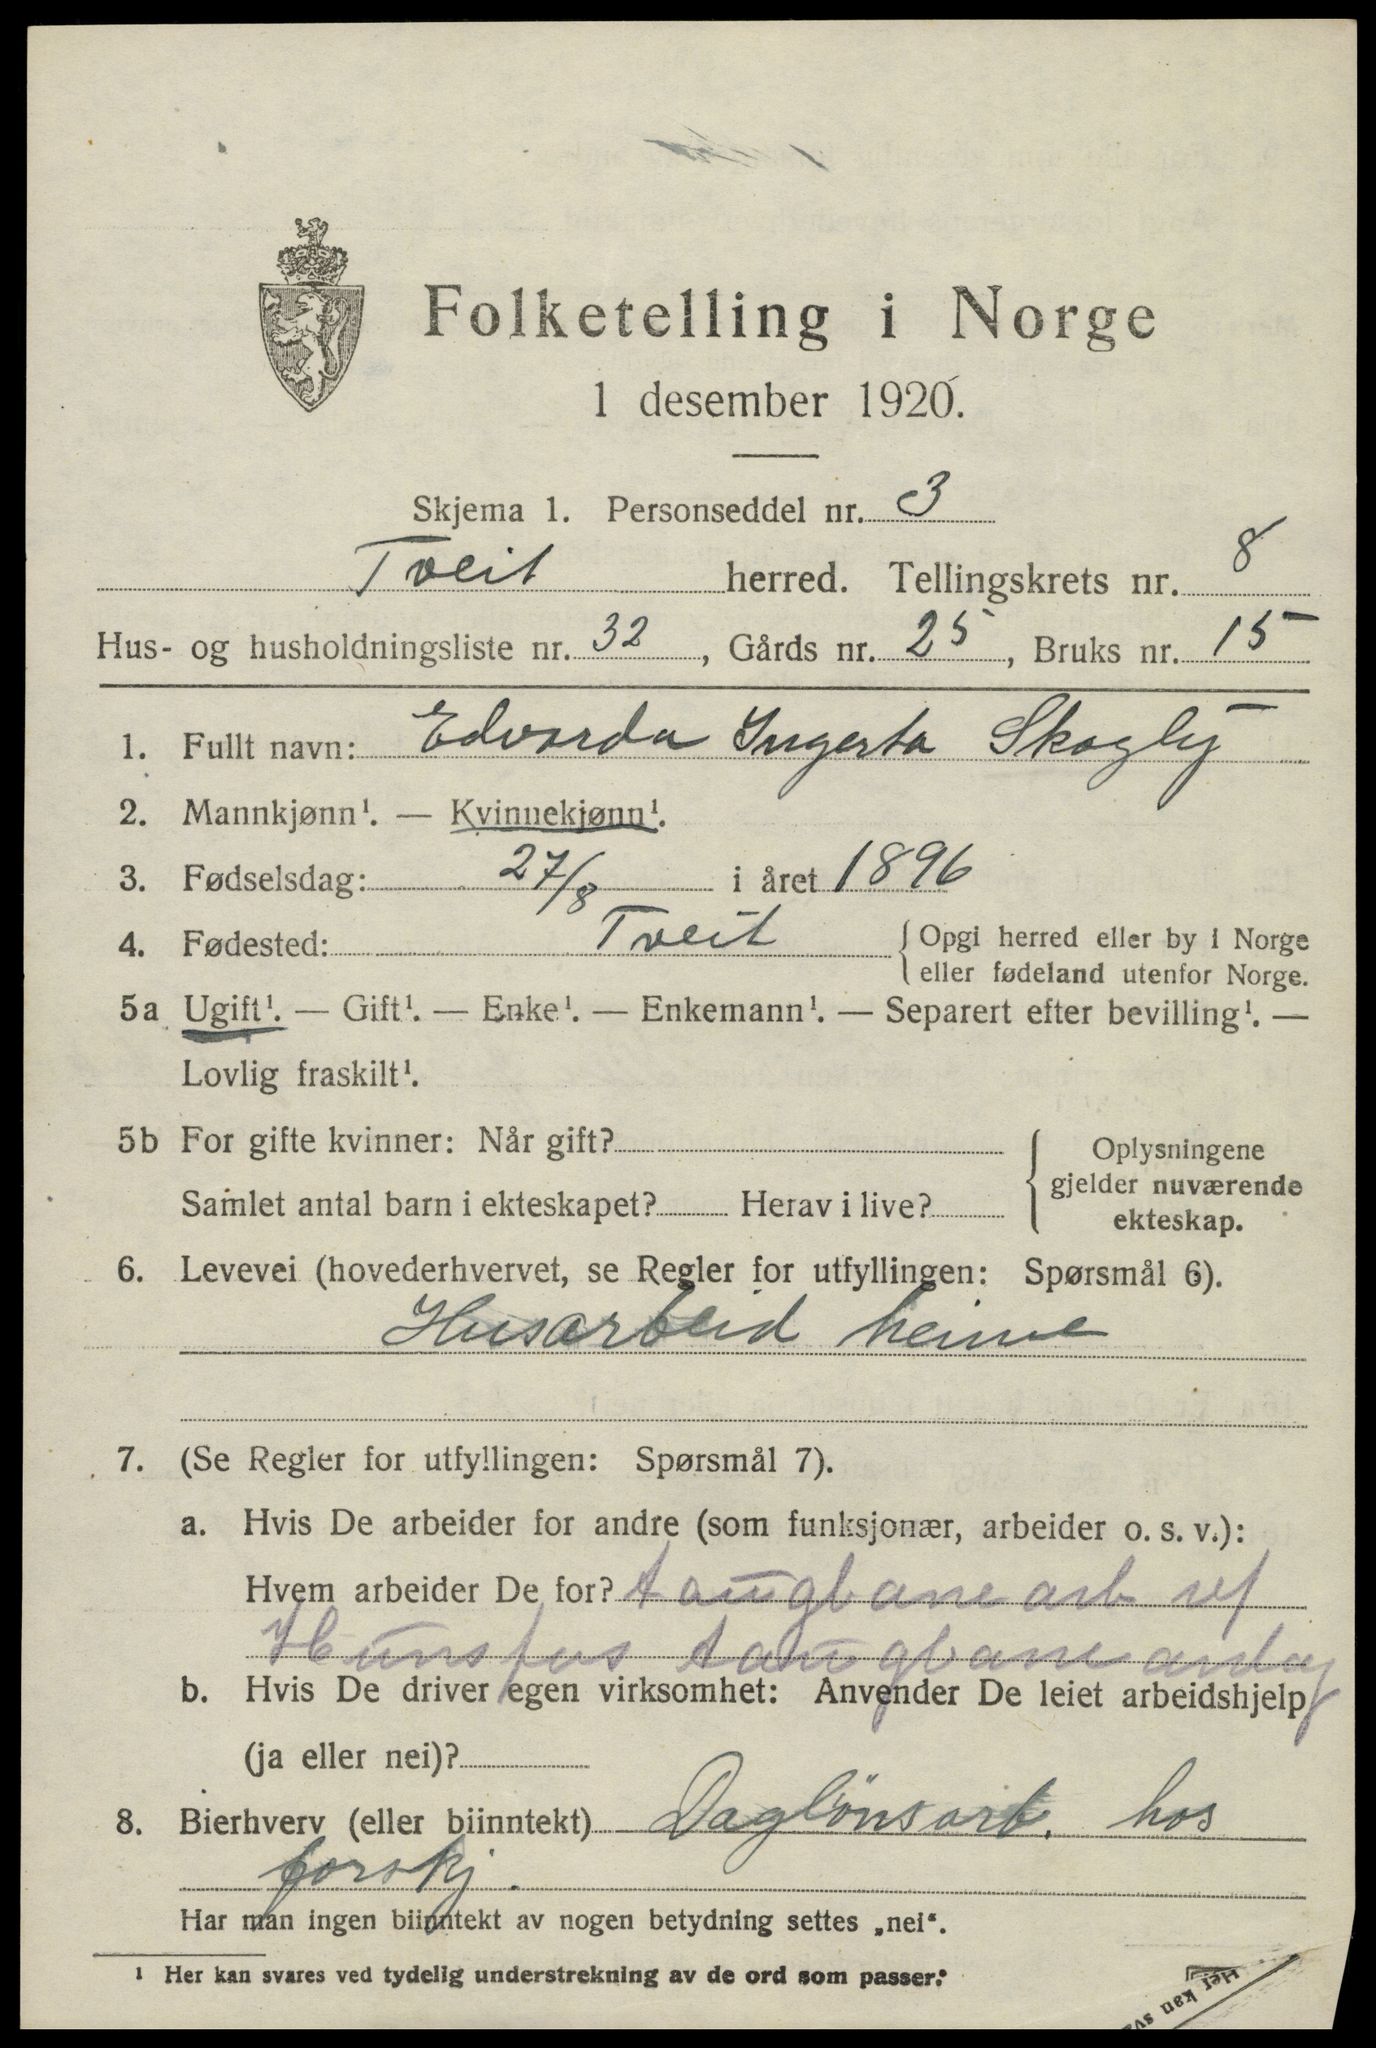 Folketelling i Norge
1 desember 1920.
Skjema 1. Personseddel nr. 3
Tveit herred. Tellingskrets nr. 8
Hus- og husholdningsliste nr. 32, Gårds nr. 25, Bruks nr. 15
1. Fullt navn: Edvarda Ingerta Skogly
2. Mannkjønn¹. — Kvinnekjønn¹.
3. Fødselsdag: 27/8 i året 1896
4. Fødested: Tveit { Opgi herred eller by i Norge
eller fødeland utenfor Norge.
5a Ugift¹. — Gift¹. — Enke¹. — Enkemann¹. — Separert efter bevilling¹. —
Lovlig fraskilt¹.
5b For gifte kvinner: Når gift?
Samlet antal barn i ekteskapet? Herav i live?
Oplysningene
gjelder nuværende
ekteskap.
6. Levevei (hovederhvervet, se Regler for utfyllingen: Spørsmål 6).
Husarbeid heime
7. (Se Regler for utfyllingen: Spørsmål 7).
a. Hvis De arbeider for andre (som funksjonær, arbeider o. s. v.):
Hvem arbeider De for? taugbanearb ved
Hunsfos taugbane
b. Hvis De driver egen virksomhet: Anvender De leiet arbeidshjelp
(ja eller nei)?
8. Bierhverv (eller biinntekt) Daglönsarb. hos
forskj.
Har man ingen biinntekt av nogen betydning settes „nei“.
¹ Her kan svares ved tydelig understrekning av de ord som passer.
Her kan sva